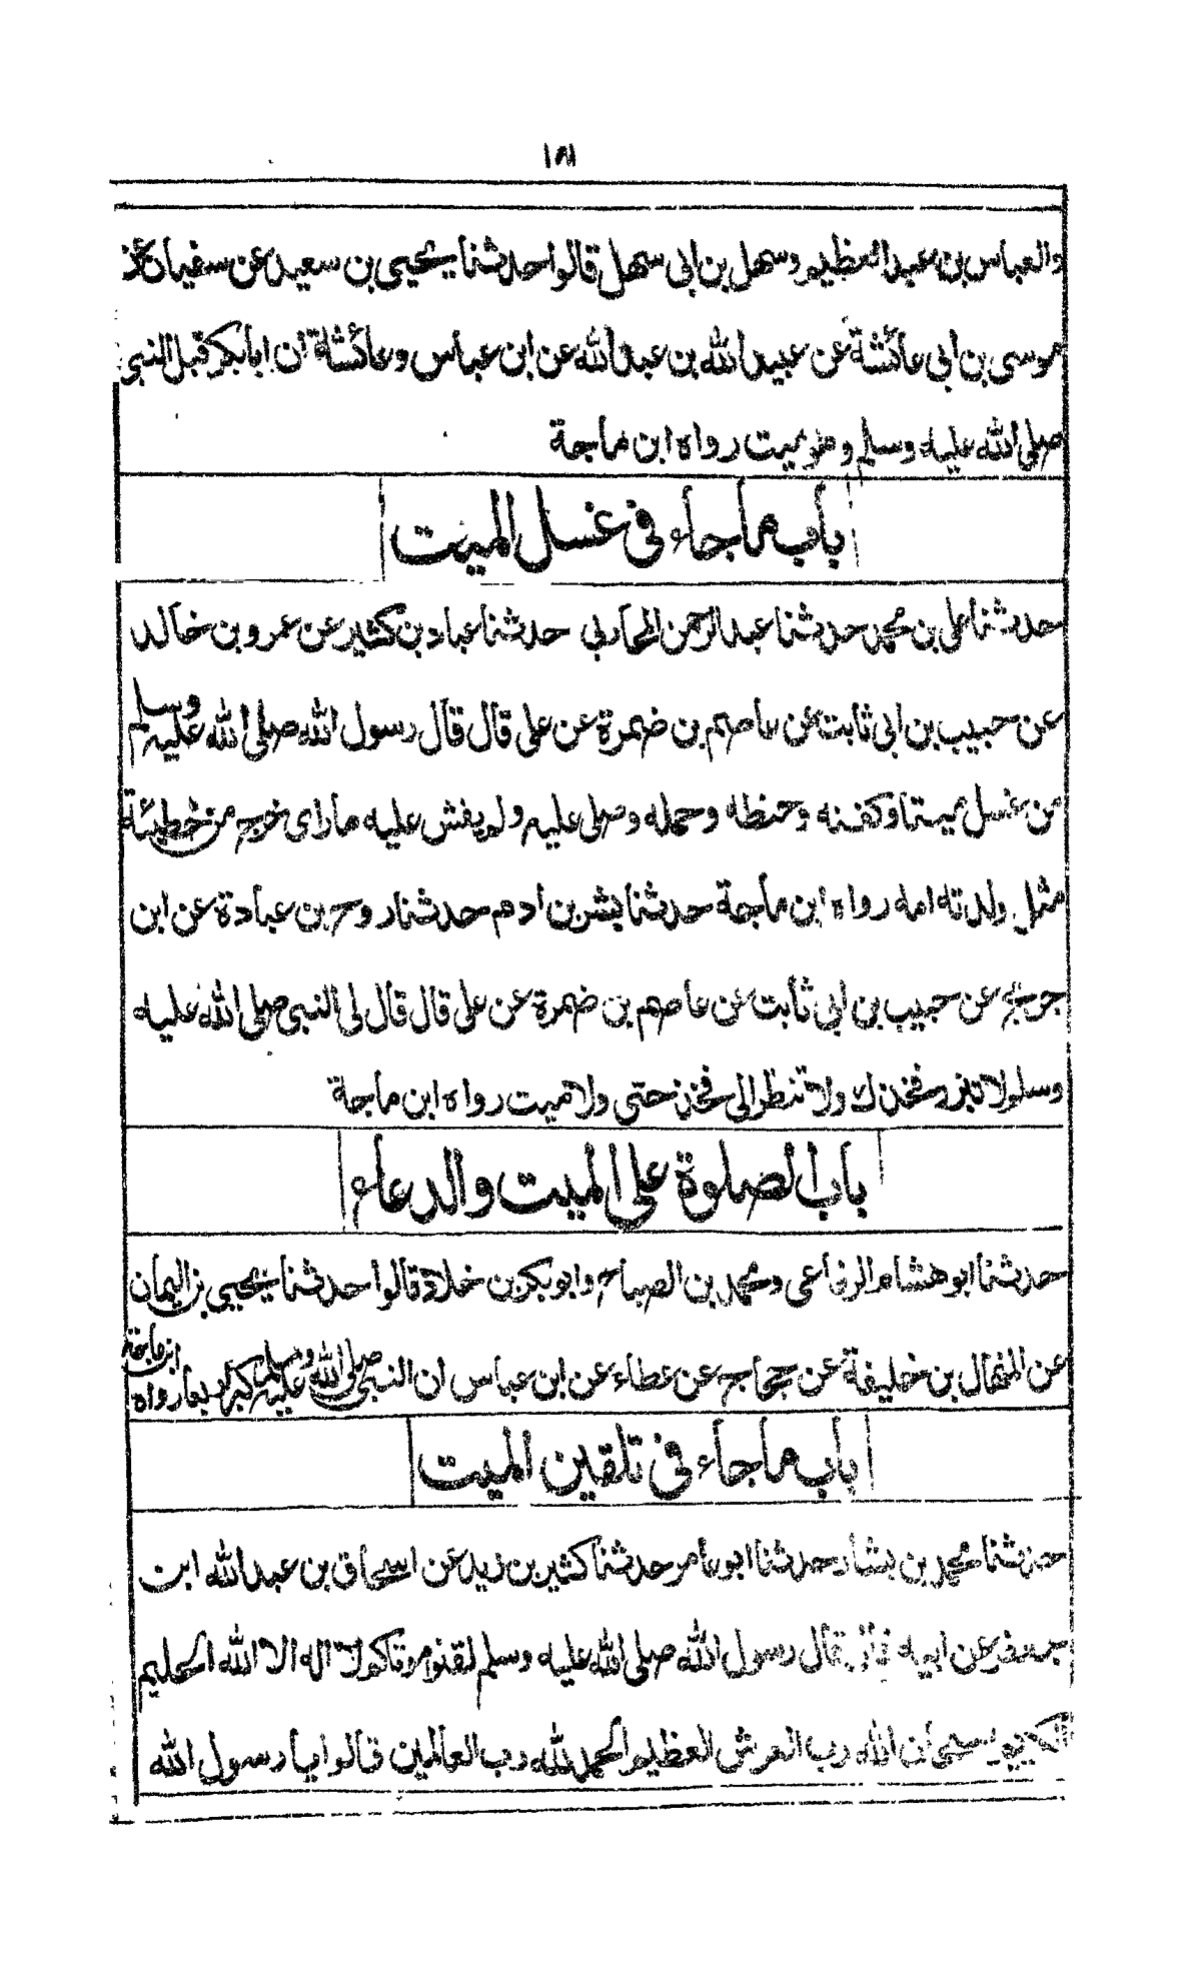 ١٥١
والعباس بن عبد العظيم وسهل بن ابى سهل قالوا حدثنا يحيى بن سعيد عن سفيان عن
موسى بن ابى عائشة عن عبيد الله بن عبد الله عن ابن عباس وعائشة ان ابابكر قبل النبى
صلى الله عليه وسلم وهو ميت رواه ابن ماجة
باب ماجاء فى غسل الميت
حدثنا على بن محمد حدثنا عبد الرحمن المحاربى حدثنا عباد بن كثير عن عمرو بن خالد
عن حبيب بن ابى ثابت عن عاصم بن ضمرة عن على قال قال رسول الله صلى الله عليه وسلم
من غسل ميتا وكفنه وحنطه وحمله وصلى عليه ولم يفش عليه ماراى خرج من خطيئة
مثل ولدته امه رواه ابن ماجة حدثنا بشر بن ادم حدثنا روح بن عبادة عن ابن
جريج عن حبيب بن ابى ثابت عن عاصم بن ضمرة عن على قال قال لى النبى صلى الله عليه
وسلم لا تبرز فخذك ولا تنظر الى فخذ حى ولا ميت رواه ابن ماجة
باب الصلوة على الميت والدعاء
حدثنا ابو هشام الرفاعى ومحمد بن الصباح وابو بكر بن خلاد قالوا حدثنا يحيى بن اليمان
عن المنهال بن خليفة عن حجاج عن عطاء عن ابن عباس ان النبى صلى الله عليه وسلم كبر اربعا رواه ابن ماجة
باب ماجاء فى تلقين الميت
حدثنا محمد بن بشار حدثنا ابو عامر حدثنا كثير بن زيد عن اسحاق بن عبد الله ابن
جعفر عن ابيه قال قال رسول الله صلى الله عليه وسلم لقنوا موتاكم لا اله الا الله الحليم
الكريم سبحان الله رب العرش العظيم الحمد لله رب العالمين قالوا يا رسول الله